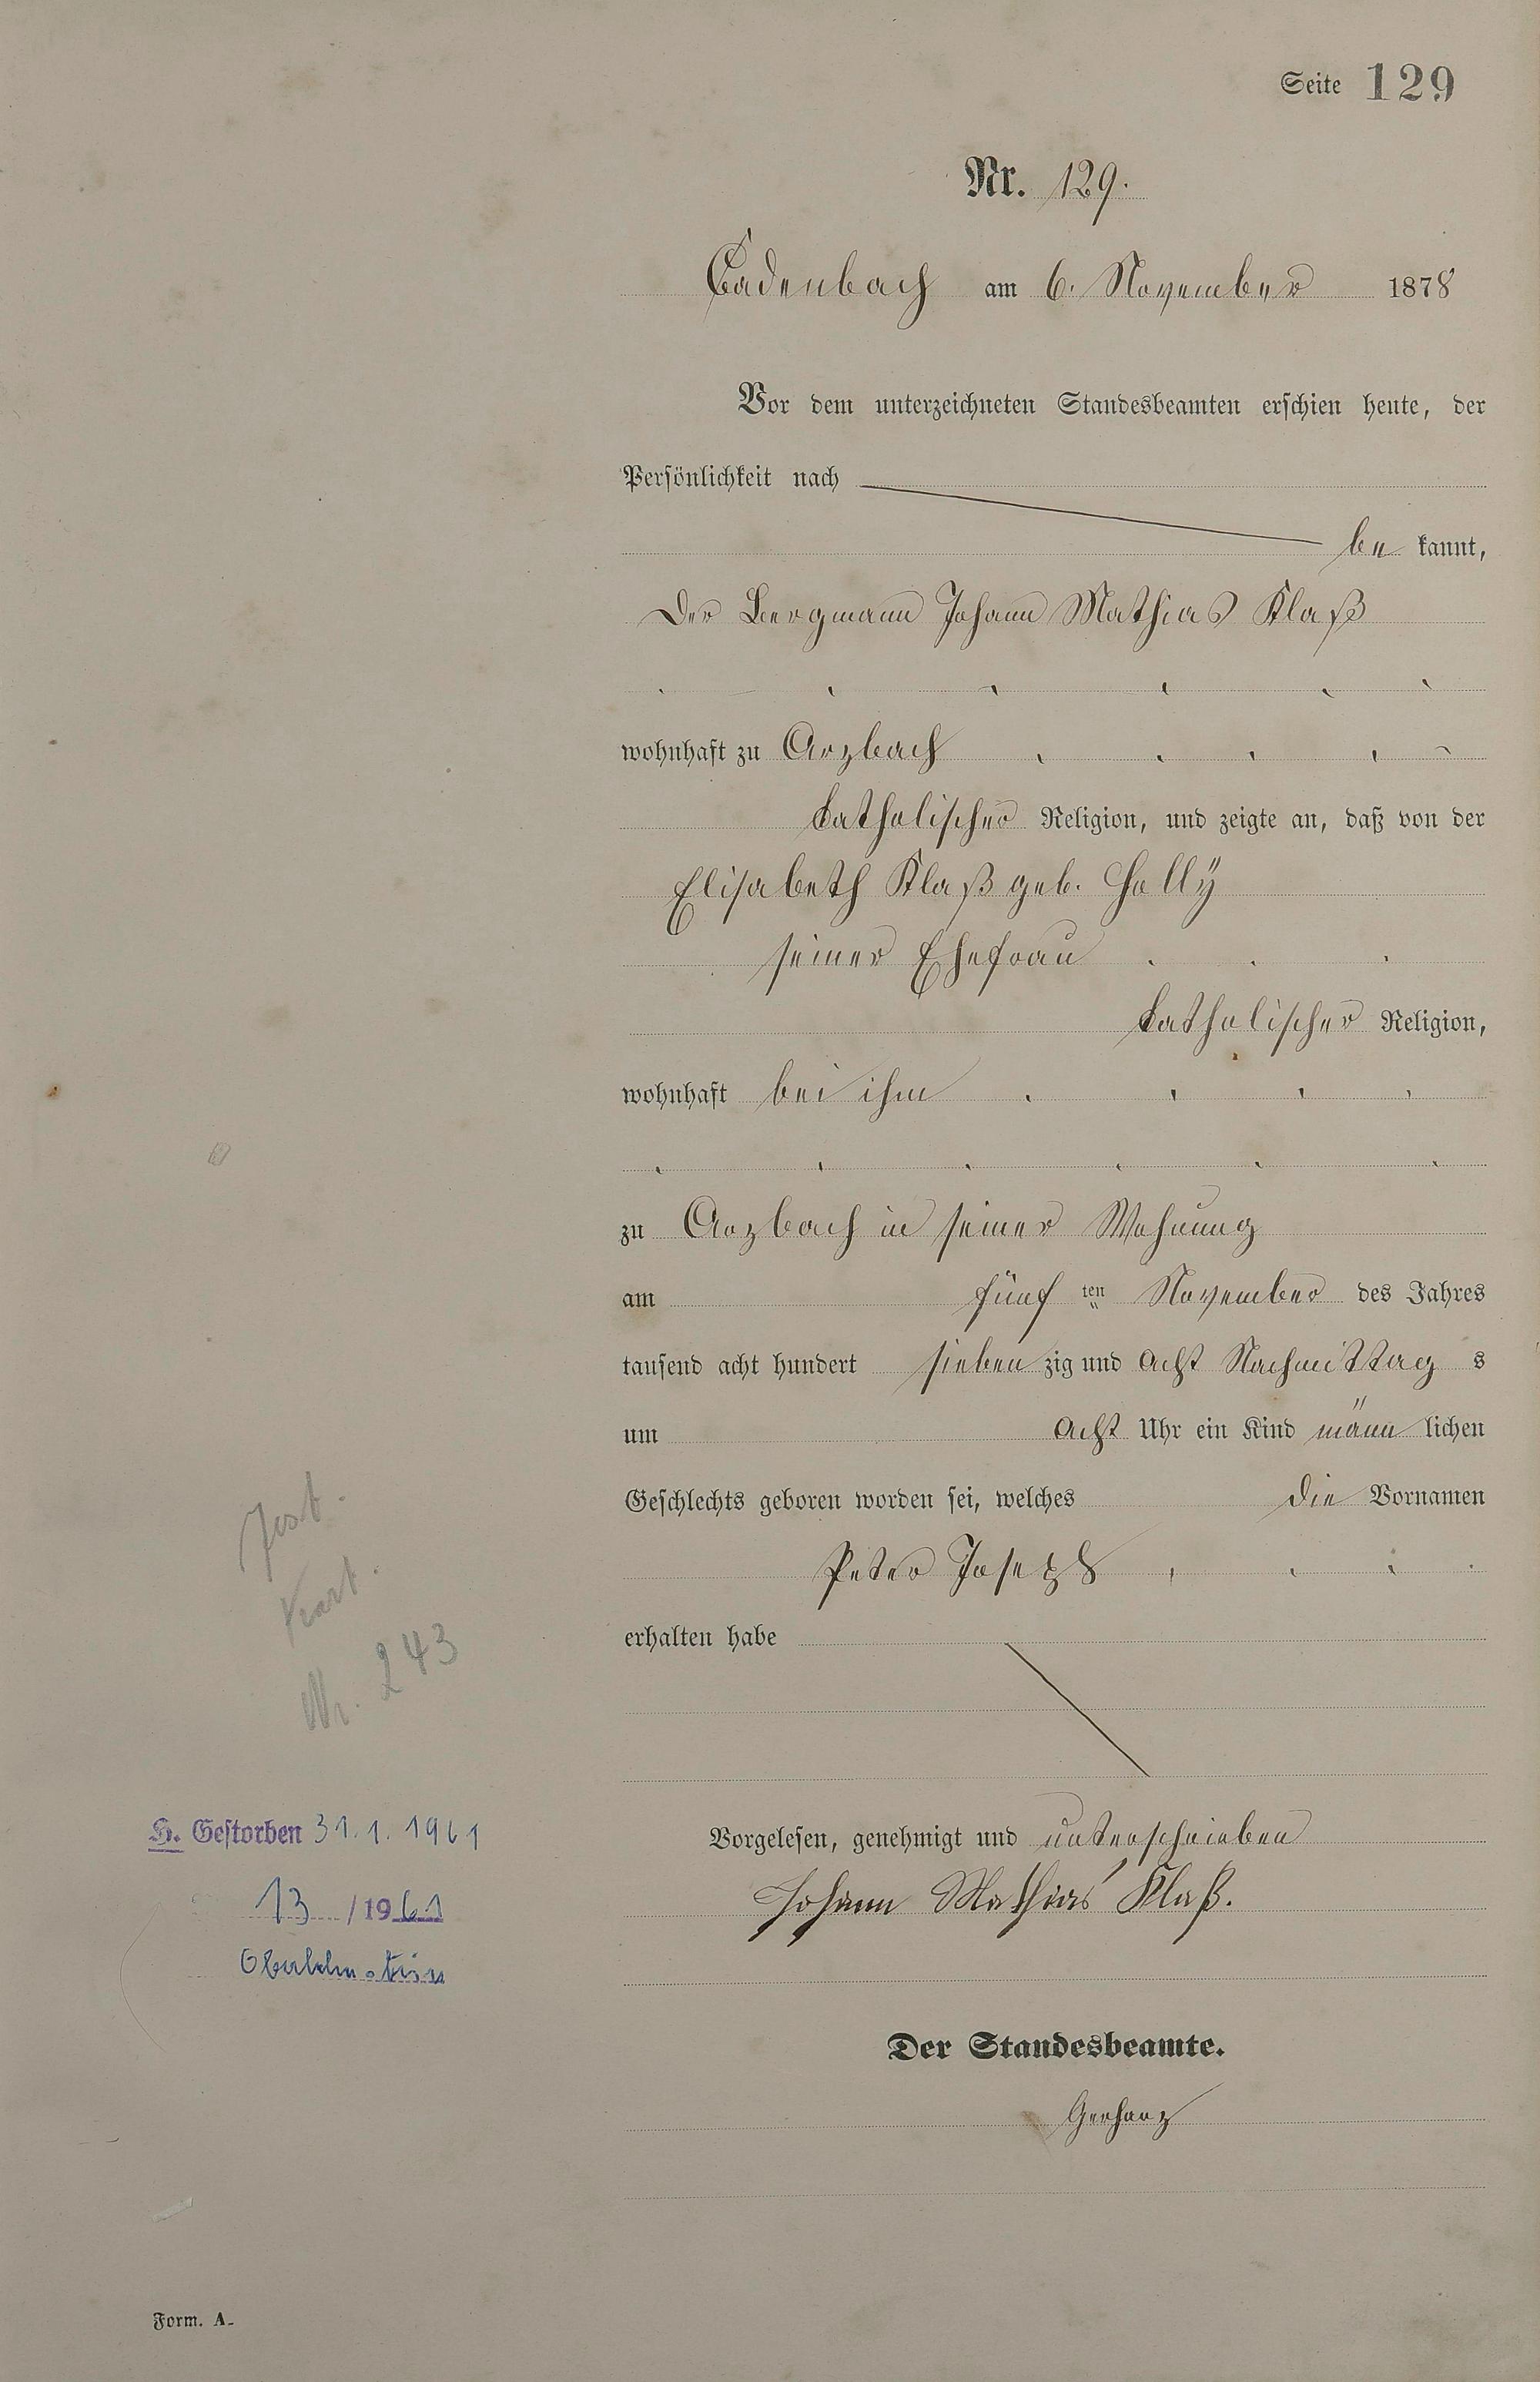 Seite 129
Nr. 129.
Cadenbach am 6. November 1878
Vor dem unterzeichneten Standesbeamten erschien heute, der
Persönlichkeit nach
be kannt,
Der Bergmann Johann Mathias Klaß
wohnhaft zu Arzbach
katholischer Religion, und zeigte an, daß von der
Elisabeth Klaß geb. Holly
seiner Ehefrau
katholischer Religion,
wohnhaft bei ihm
zu Arzbach in seiner Wohnung
am fünf ten November des Jahres
tausend acht hundert sieben zig und acht Nachmittag s
um acht Uhr ein Kind männ lichen
Geschlechts geboren worden sei, welches die Vornamen
Peter Joseph
erhalten habe
Vorgelesen, genehmigt und unterschrieben
Johann Mathias Klaß.
Der Standesbeamte.
Gerharz
Kart.
Nr. 243
H. Gestorben 31.1.1961
13 /1961
Oberlahnstein
Form. A.